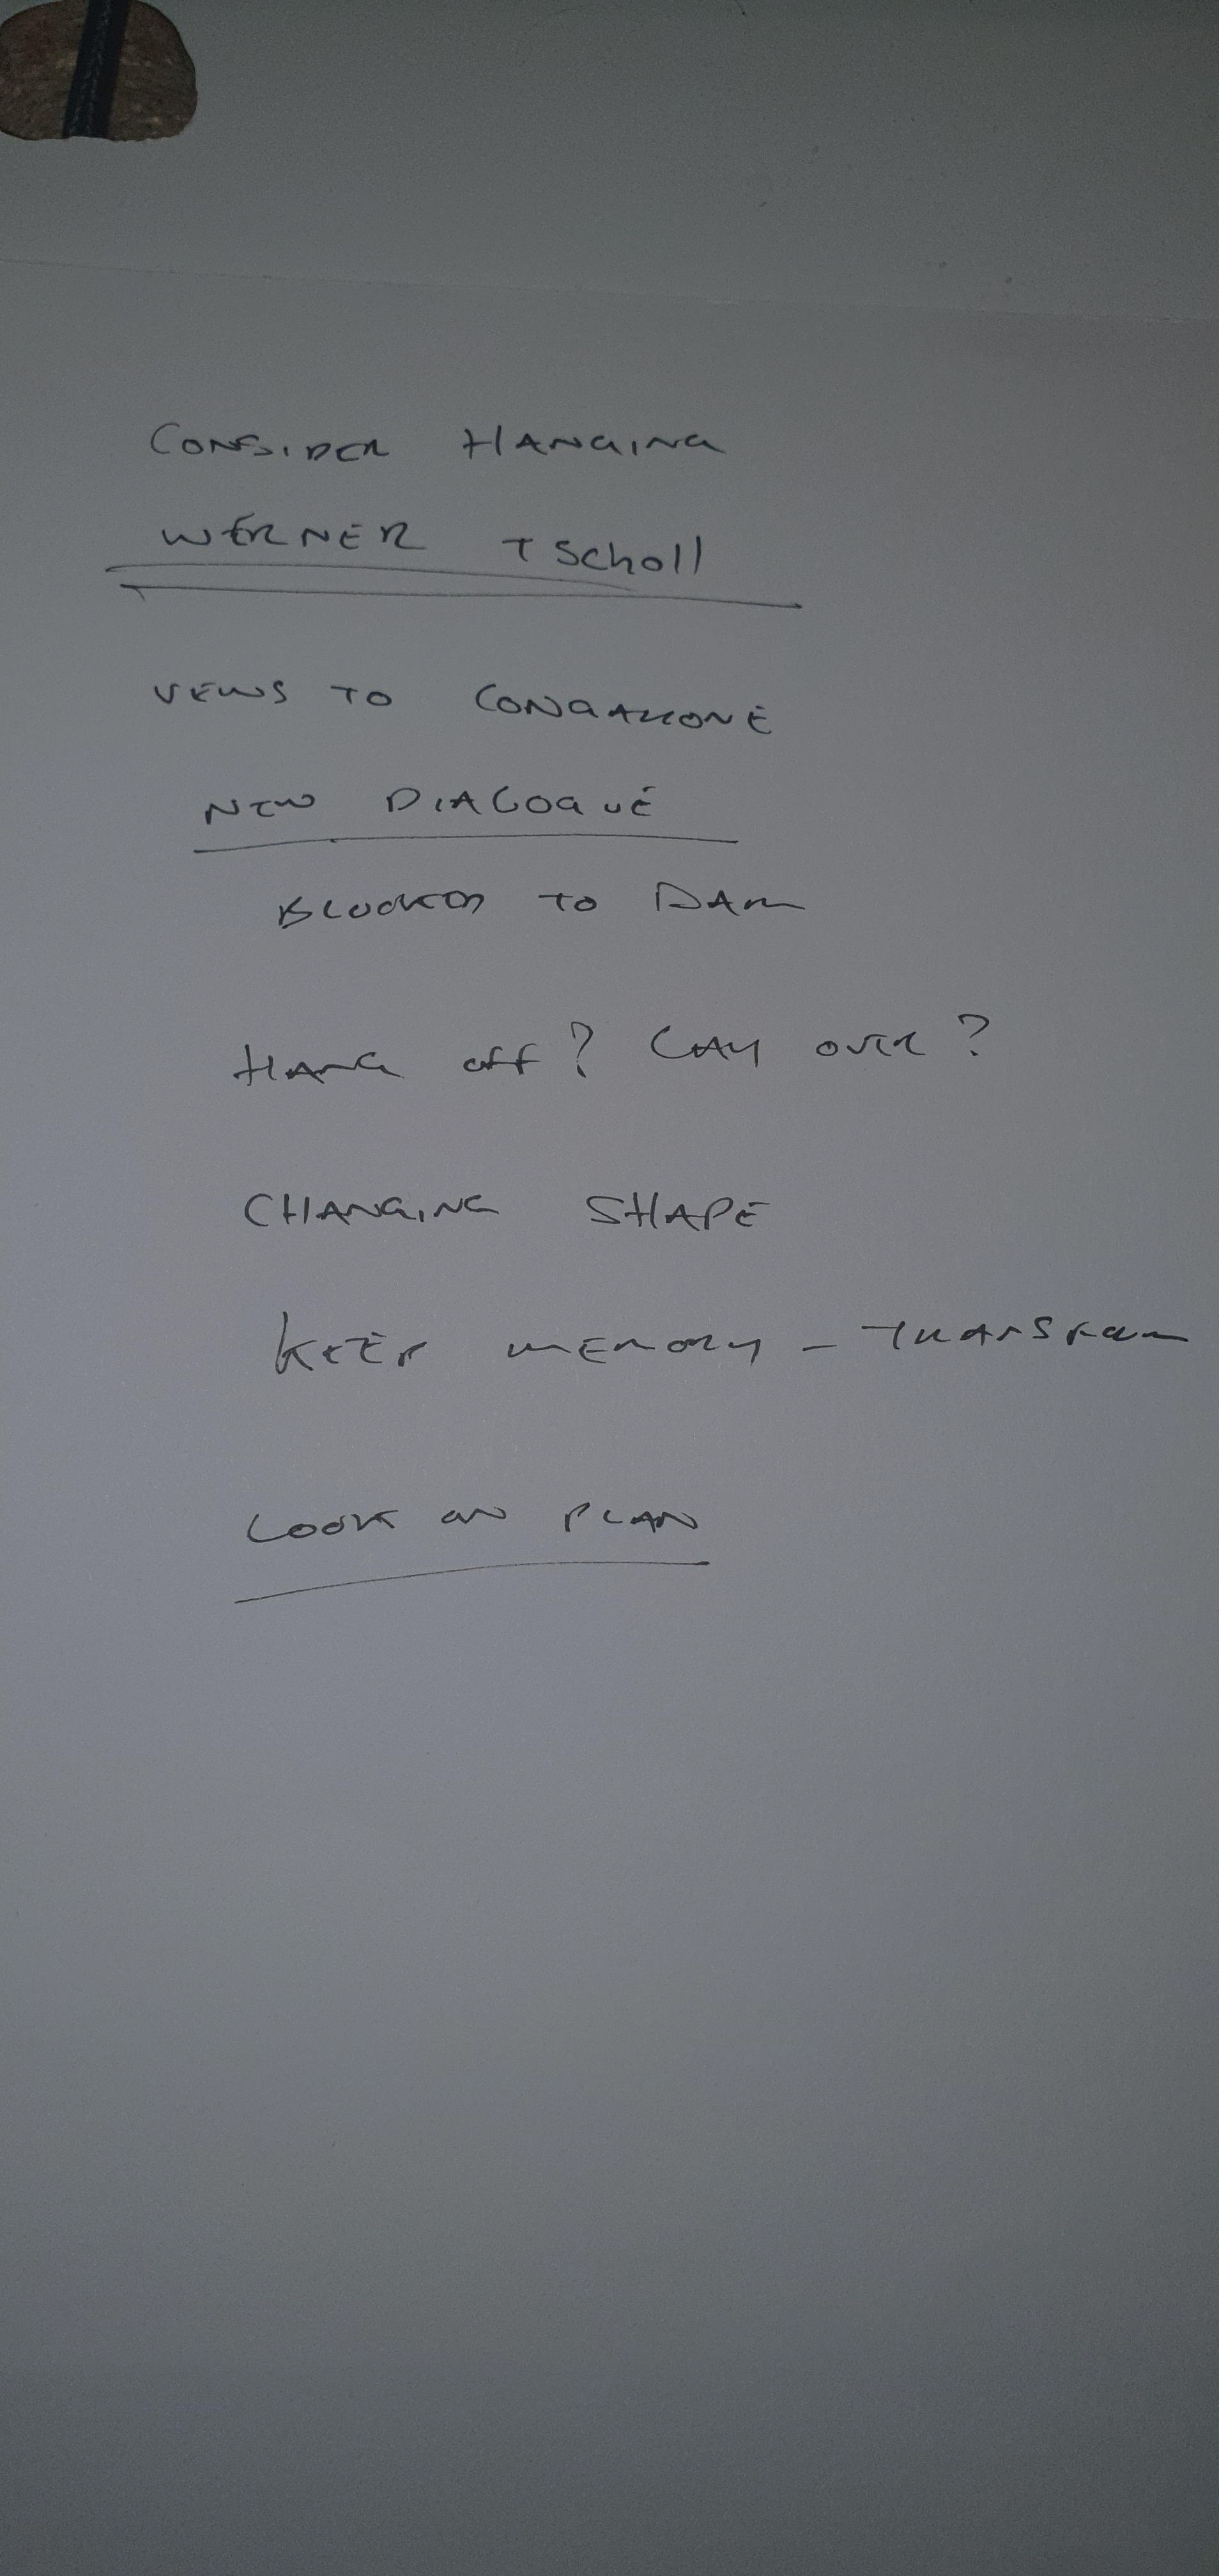 CONSIDER HANGING
WERNER TScholl
VEWS TO CONGARONE
NEW DIALOGUE
BLOCKED TO DAM
HANG off? LAY over?
CHANGING SHAPE
KEEP MEMORY - TRANSFORM
LOOK ON PLAN